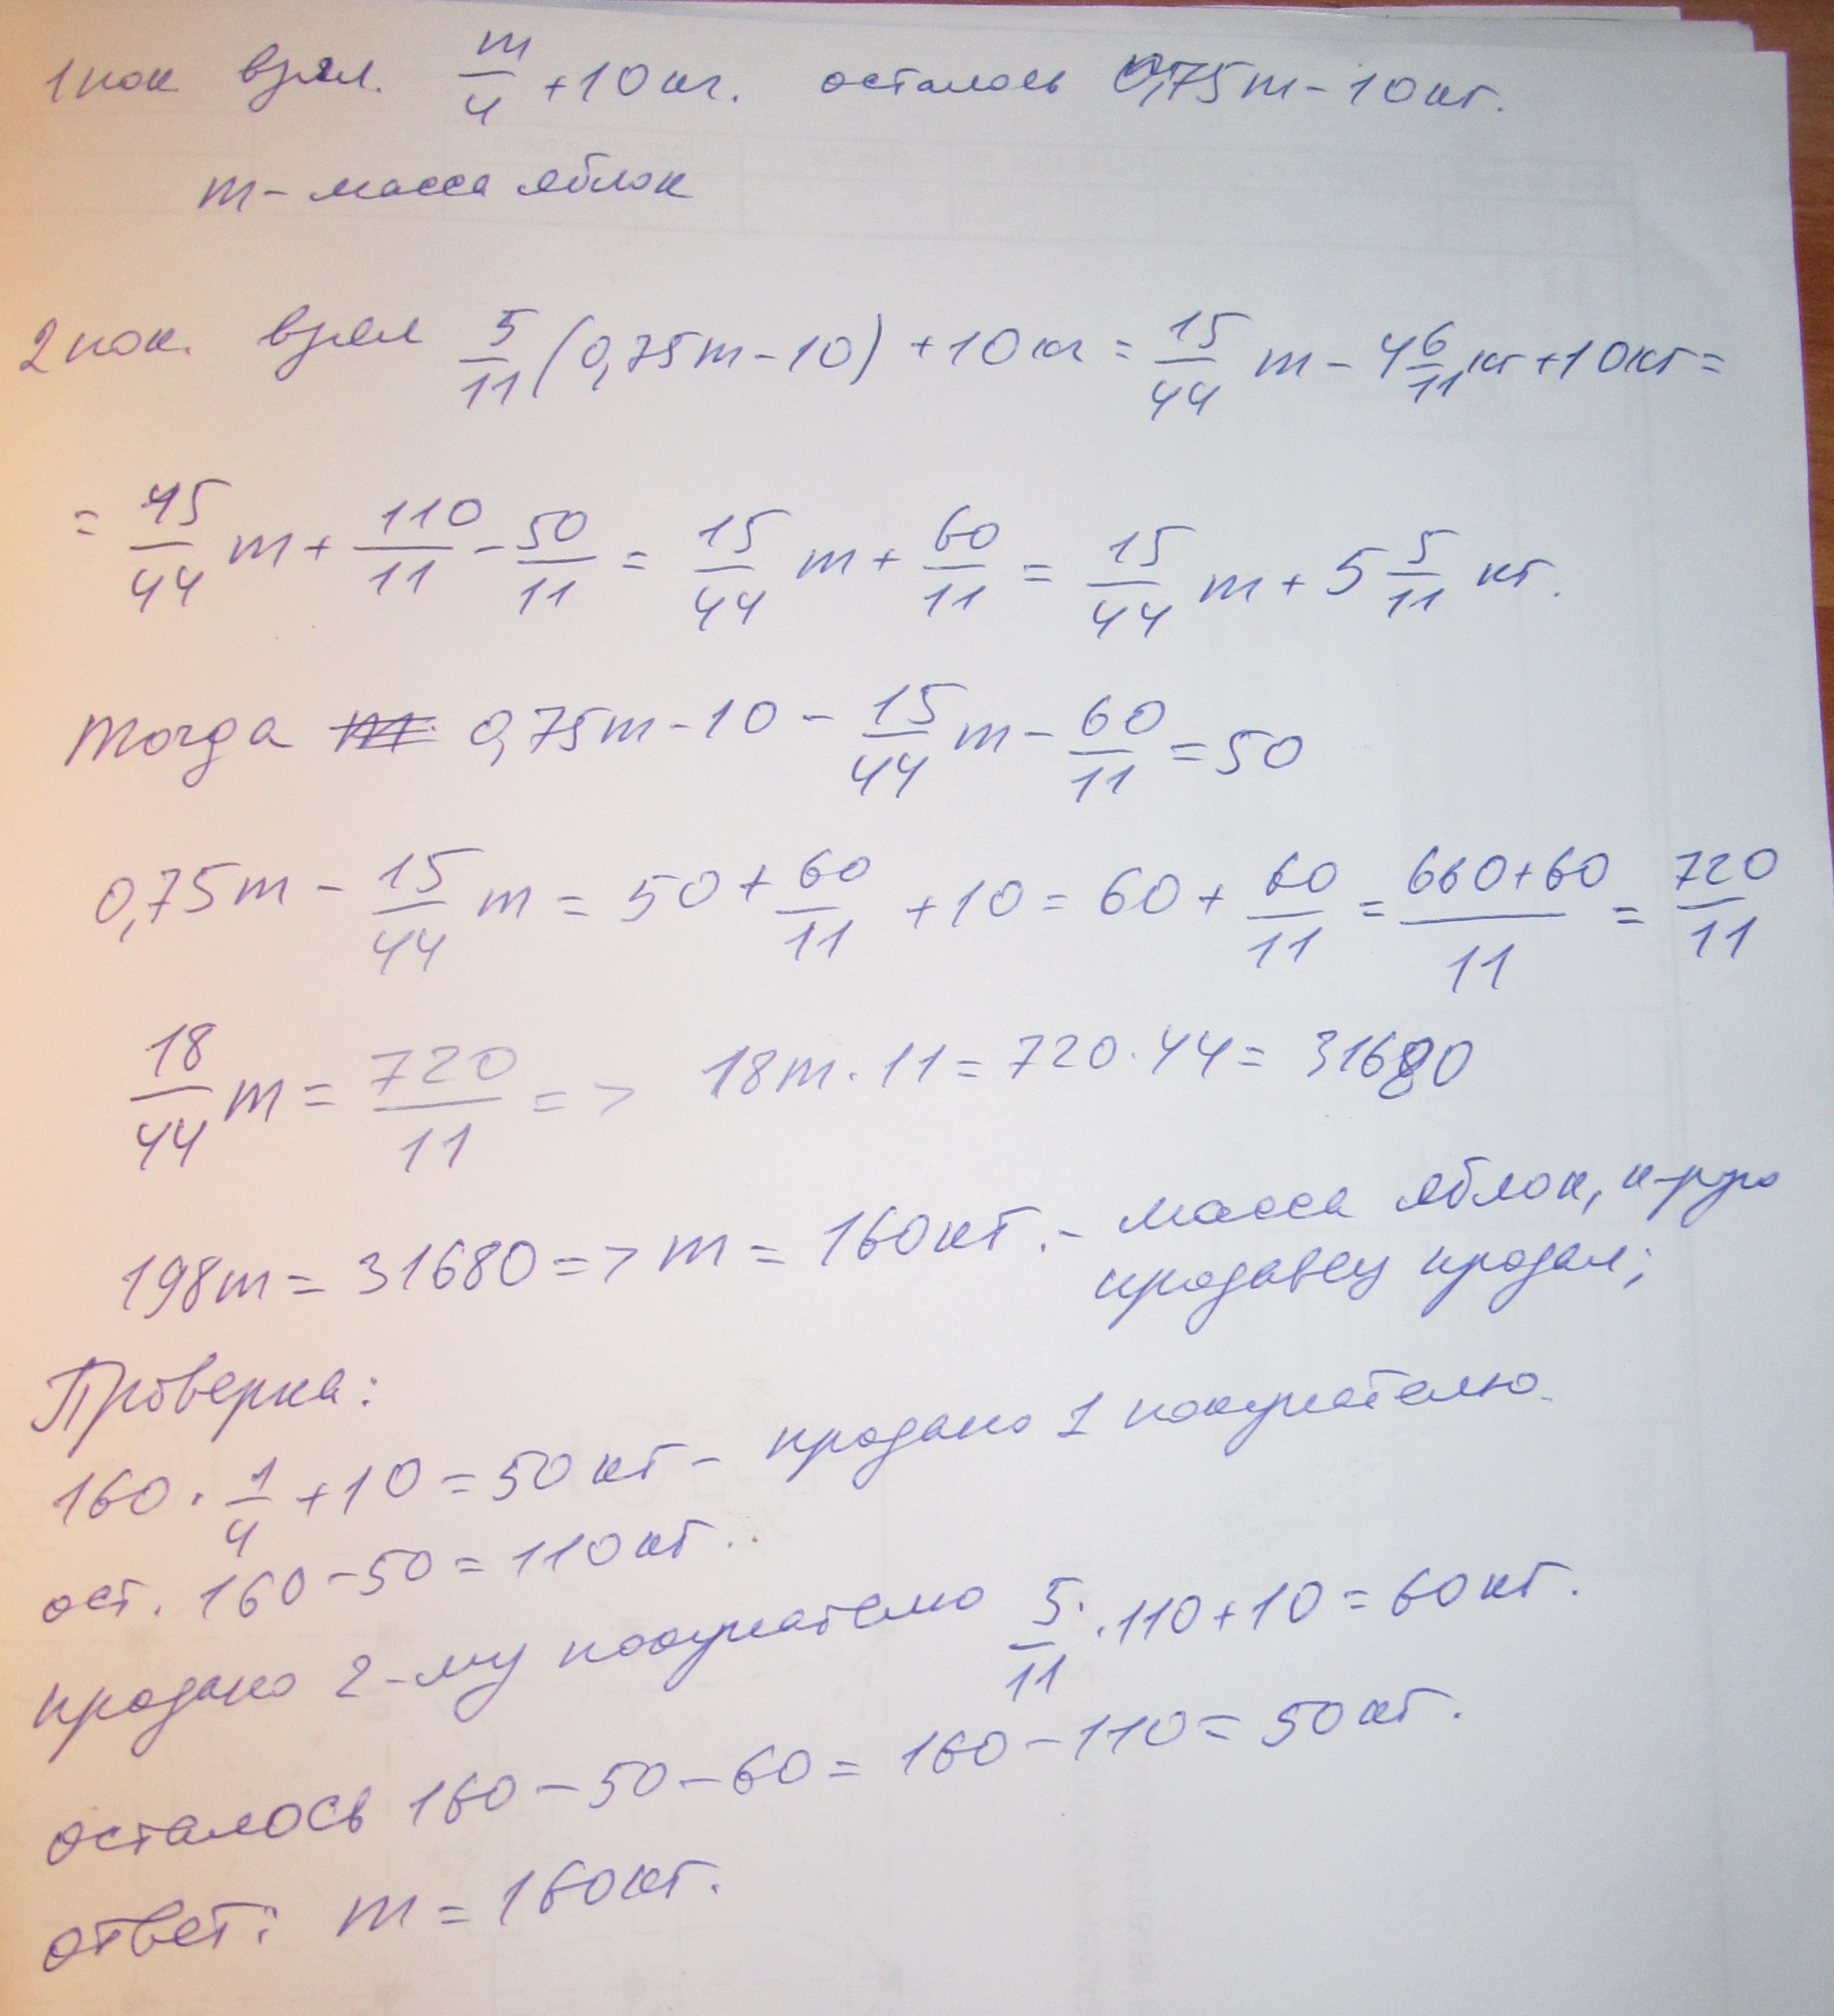 1 пок. взял. m/4 + 10 кг. осталось 0,75m - 10 кг.
m - масса яблок
2 пок. взял 5/11 (0,75m - 10) + 10 кг = 15/44 m - 4 6/11 кг + 10 кг =
= 15/44 m + 110/11 - 50/11 = 15/44 m + 60/11 = 15/44 m + 5 5/11 кг.
Тогда 0,75m - 10 - 15/44 m - 60/11 = 50
0,75m - 15/44 m = 50 + 60/11 + 10 = 60 + 60/11 = (660+60)/11 = 720/11
18/44 m = 720/11 => 18m · 11 = 720 · 44 = 31680
198m = 31680 => m = 160 кг. - масса яблок, к-рую
продавец продал;
Проверка:
160 · 1/4 + 10 = 50 кг - продано 1 покупателю.
ост. 160 - 50 = 110 кг.
продано 2-му покупателю 5/11 · 110 + 10 = 60 кг.
осталось 160 - 50 - 60 = 160 - 110 = 50 кг.
ответ: m = 160 кг.